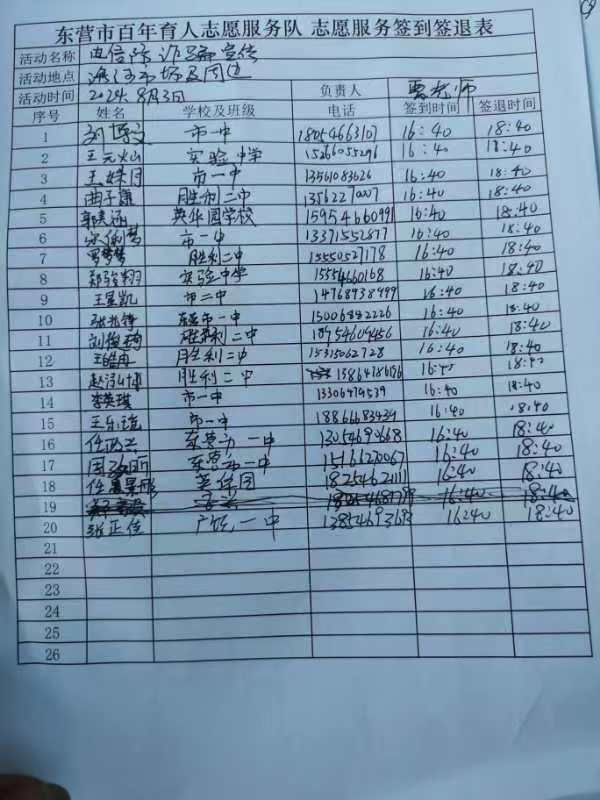 东营市百年育人志愿服务队 志愿服务签到签退表
活动名称 电信防诈骗宣传
活动地点 海河市场及周边
活动时间 2024.8月3日 负责人 贾老师
序号 姓名 学校及班级 电话 签到时间 签退时间
1 市一中 18054663107 16:40 18:40
2 王元灿 实验中学 15266055296 16:40 18:40
3 王姝月 市一中 13561083626 16:40 18:40
4 曲子豪 胜利二中 13562270007 16:40 18:40
5 英华园学校 15954660991 16:40 18:40
6 市一中 13371552877 16:40 18:40
7 胜利二中 15550527178 16:40 18:40
8 实验中学 15554660168 16:40 18:40
9 王星凯 市二中 14768938999 16:40 18:40
10 东营市一中 15006842226 16:40 18:40
11 胜利二中 18954609456 16:40 18:40
12 胜利二中 15315062728 16:40 18:40
13 胜利二中 16:40 18:40
14 李英琪 市一中 13306479539 16:40 18:40
15 市一中 18866683439 16:40 18:40
16 东营市一中 13054690668 16:40 18:40
17 东营市一中 15166200067 16:40 18:40
18 英华园 18254621111 16:40 18:40
19 16:40 18:40
20 张正佳 广饶一中 13854693683 16:40 18:40
21
22
23
24
25
26